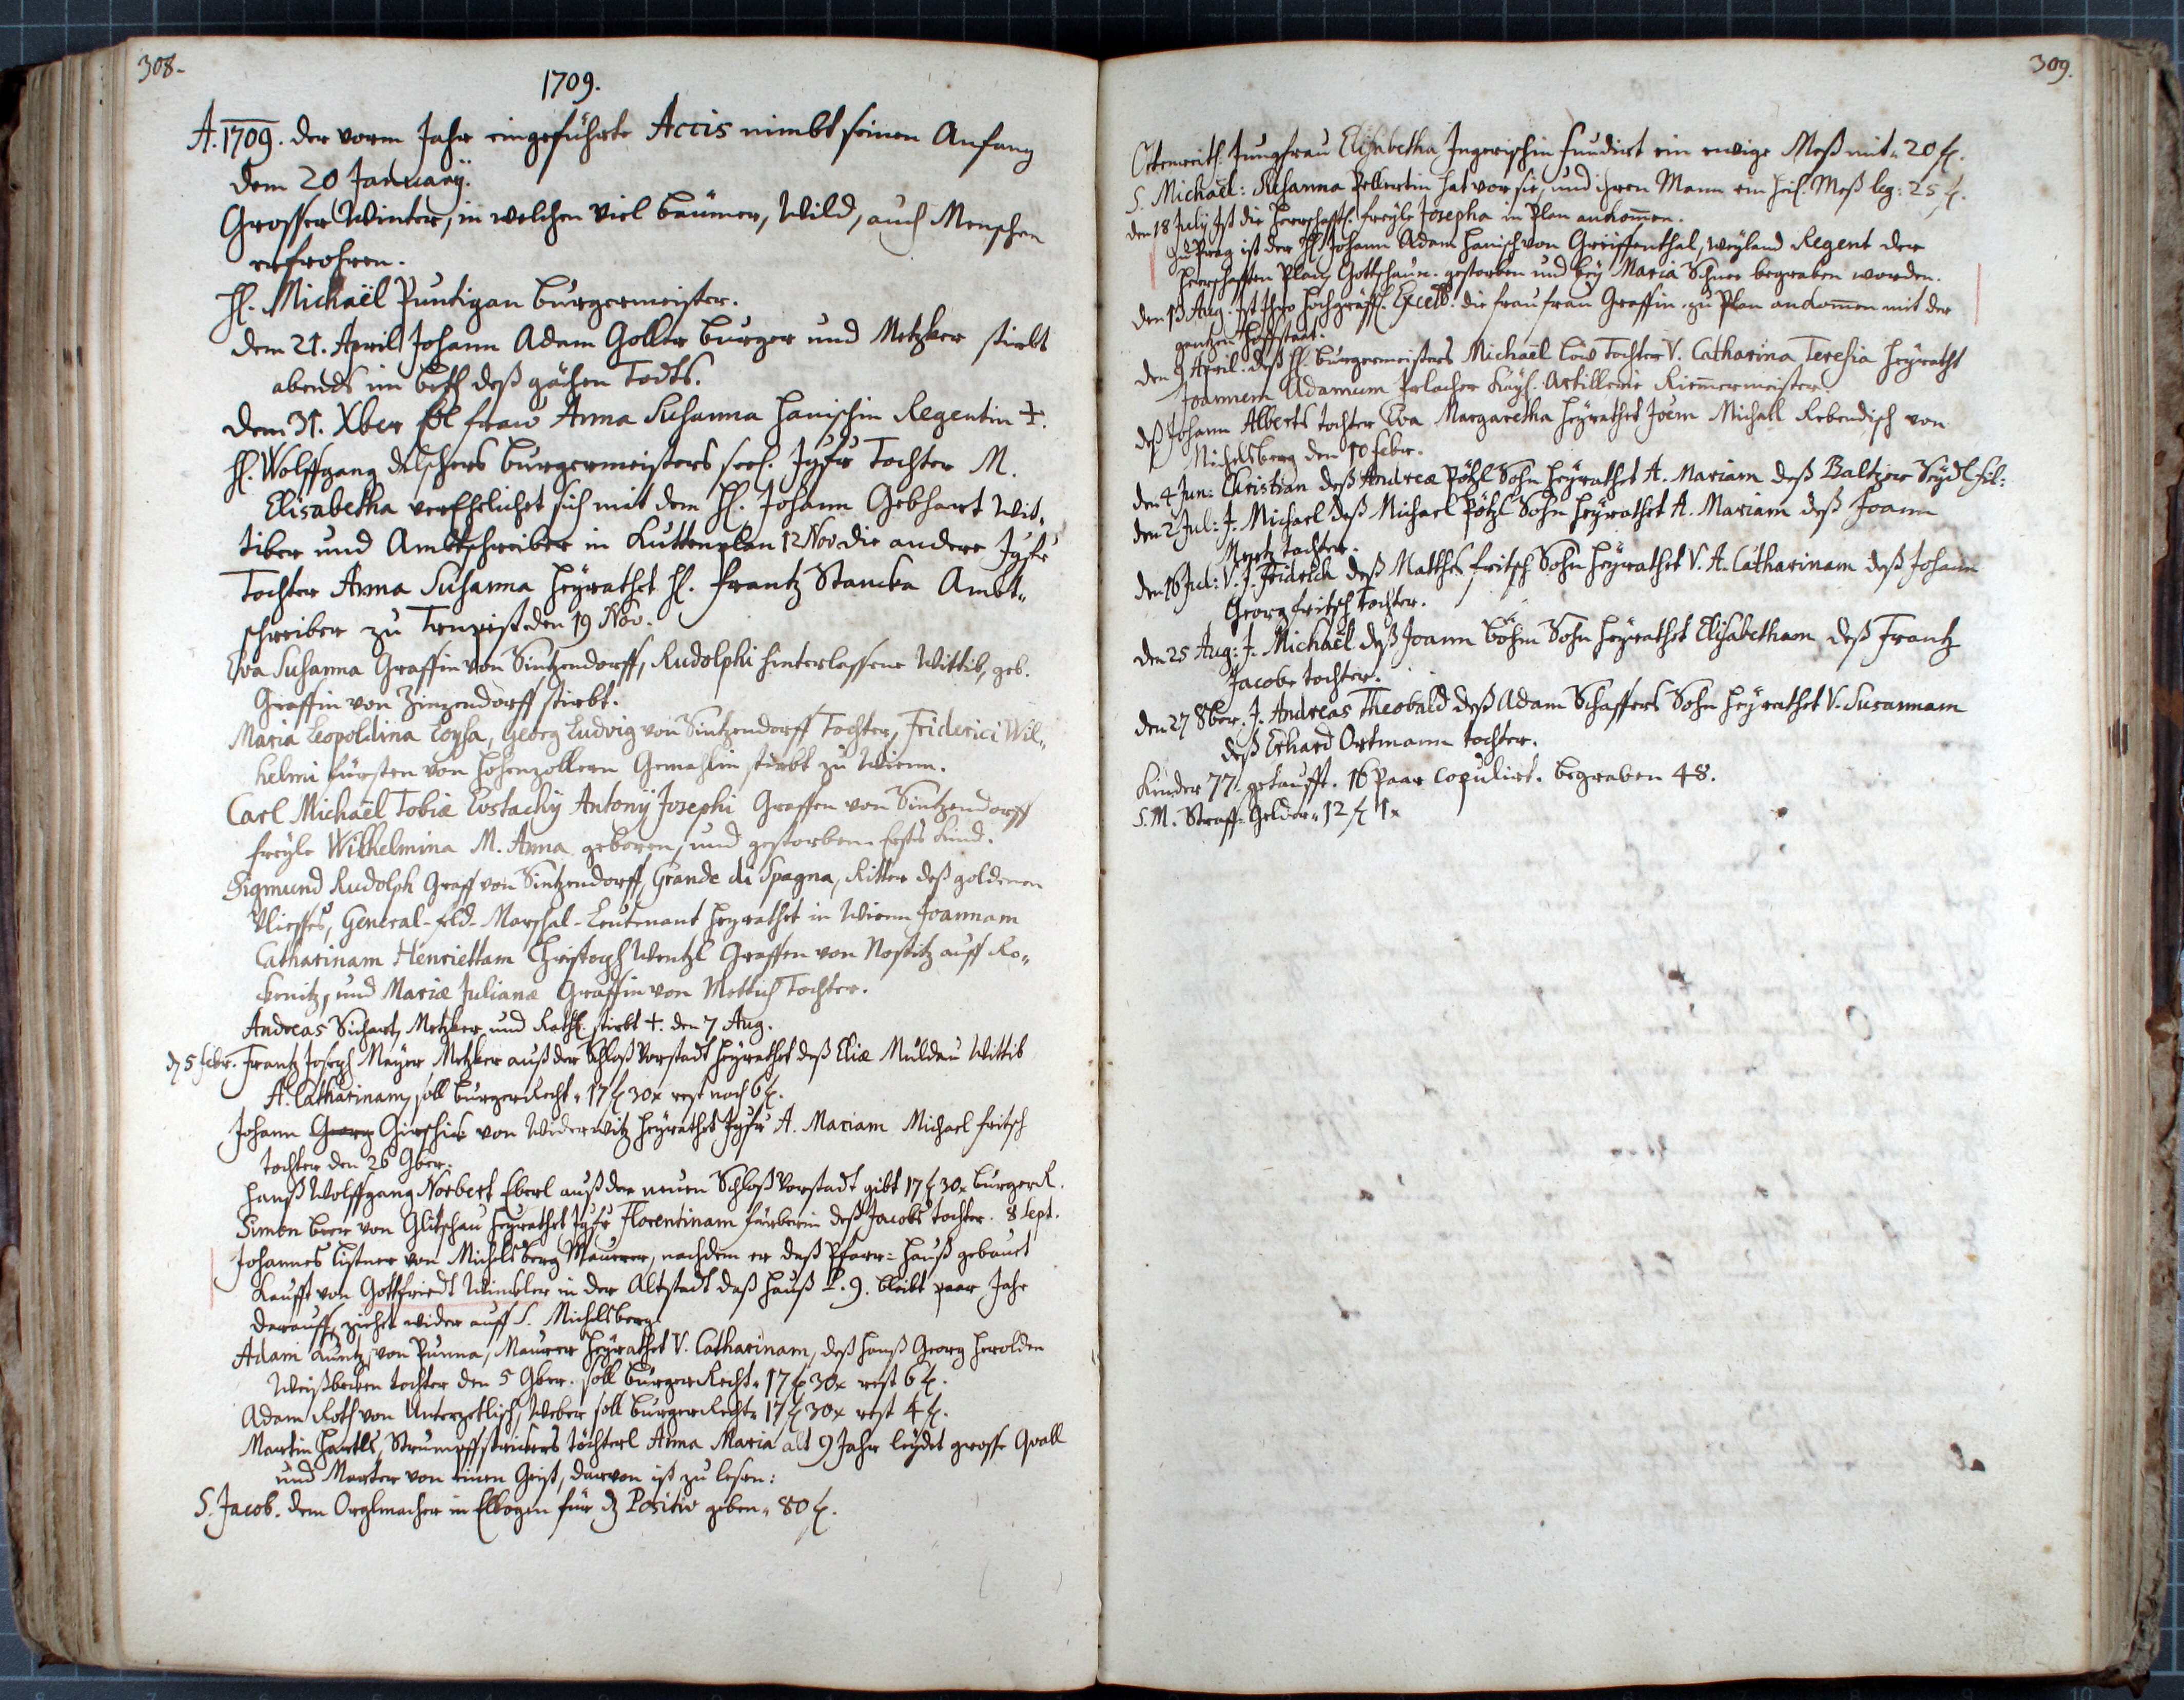 308.
1709.
A. 1709. der vorm Jahr eingeführte Accis nimbt seinen Anfang
dem 20 January.
Grosser Winter, in welchen viel bäumer, Wild, auch Menschen
erfrohren.
H. Michaël Puntigan burgermeister.
dem 21. April Johann Adam Goller burger und Metzker stirbt
abends im beth deß gächen Todts.
dem 31. Xber frau Anna Susanna Hanischin Regentin +.
H. Wolffgang burgermeisters seel. Jgfr Tochter M.
Elisabetha verEhelichet sich mit dem H. Johann Gebhart Wit„
tiber und Ambtschreiber in Kuttenplan 12 Nov die andere Jgfr
Tochter Anna Susanna heyrathet H. Frantz Stancka Ambt„
schreiber zu den 19 Nov.
Eva Susanna Graffin von Sintzendorff, Rudolphi hinterlassene Wittib, geb.
Graffin von Zinzendorff stirbt.
Maria Leopoldina Loysa, Georg Ludvig von Sintzendorff Tochter, Friderici Wil„
helmi fürsten von Hohenzollern Gemahlin stirbt zu Wienn.
Carl Michaël Tobiæ Eustachÿ Antonÿ Josephi Graffen von Sintzendorff
freyle Wilhelmina M. Anna geboren, und gestorben. Erstes Kind.
Sigmund Rudolph Graff von Sintzendorff, Grande di Spagna, Ritter deß goldenen
Vliesses, General-feld-Marschal-Leutenant heyrathet in Wienn Joannam
Catharinam Henriettam Christoph Wentzl Graffen von Nostitz auff Ro„
kenitz, und Mariæ Julianæ Graffin von Mettich Tochter.
Andreas Sichart, Metzker und Rathß. stirbt +. den 7 Aug.
d. 5 febr. Frantz Joseph Mayer Metzker auß der Schloß Vorstadt heyrathet deß Eliæ Muldau Wittib
A. Catharinam, soll burger Recht „ 17 f 30 x rest noch 6 f.
Johann Georg Girschick von Widerwitz heyrathet Jgfr A. Mariam Michael fritsch
tochter den 26 9ber.
Hanß Wolffgang Norbert Eberl auß der neuen Schloß Vorstadt gibt 17 f 30 x burger R.
Simon beer von Glitschau heyrathet Jgfr Florentinam färberin deß Jacobs tochter. 8 Sept.
Johannes Listner von Michelsberg Maurer, nachdem er daß Pfarr-Hauß gebaut
Kaufft von Gottfriedt Winckler in der Altstadt daß Hauß P. 9. bleibt paar Jahr
darauff, ziehet wider auff S. Michelsberg.
Adam Kuntz, von Punna, Maurer heyrathet V. Catharinam, deß Hanß Georg Herolden
Weißbecken tochter den 5 9ber. soll burger Recht „ 17 f 30 x rest 6 f.
Adam Roth von Unterzetlisch, Weber soll burger Recht „ 17 f 30 x rest 4 f.
Martin Hartls, Strumpffstrickers töchterl Anna Maria alt 9 Jahr leydet grosse Quall
und Marter von einen Geist, darvon ist zu lesen:
S. Jacob. dem Orglmacher in Elbogen für dz Positiv geben „ 80 f.
309.
Ottenreith. Jungfrau Elisabetha Ingerischin fundirt ein ewige Meß mit „ 20 f.
S. Michaël: Susanna Pellertin hat vor sie, und ihren Mann ein heil. Meß leg: 25 f.
den 18 July ist die Herrschafft. freyle Josepha in Plan ankomen.
Zu Prag ist der H. Johann Adam Hanisch von Greiffenthal, weyland Regent der
Herrschafften Plan, Gottschau. gestorben und bey Maria Schnee begraben worden.
den 13 Aug. ist Ihro Hochgräffl. Excell. die frau frau Graffin zu Plan ankomen mit der
gantzen Hoffstadt.
den 9 April. deß H. burgermeisters Michaël Löw Tochter V. Catharina Teresia heyrath
Joannem Adamum Irlacher Kayl. Artillerie Riemermeister.
deß Johann Alberts tochter Eva Margaretha heyrathet Joem Michaël Rebendisch von
Michelsberg den 10 febr.
den 4 Jun: Christian deß Andreæ Pötzl Sohn heyrathet A. Mariam deß Baltzer Seydl fil:
den 2 Jul: J. Michael deß Michael Pötzl Sohn heyrathet A. Mariam deß Joann
Mertz tochter.
den 16 Jul: V. J. Fridrich deß Matthes fritsch Sohn heyrathet V. A. Catharinam deß Johann
Georg fritsch tochter.
den 25 Aug: J. Michaël deß Joann Böhm Sohn heyrathet Elisabetham deß Frantz
Jacobe tochter.
den 27 8ber. J. Andreas Theobald deß Adam Schaffers Sohn heyrathet V. Susannam
deß Erhard Ortmann tochter.
Kinder 77 getaufft. 16 Paar copulirt. begraben 48.
S. M. Straff-Gelder „ 12 f 1 x